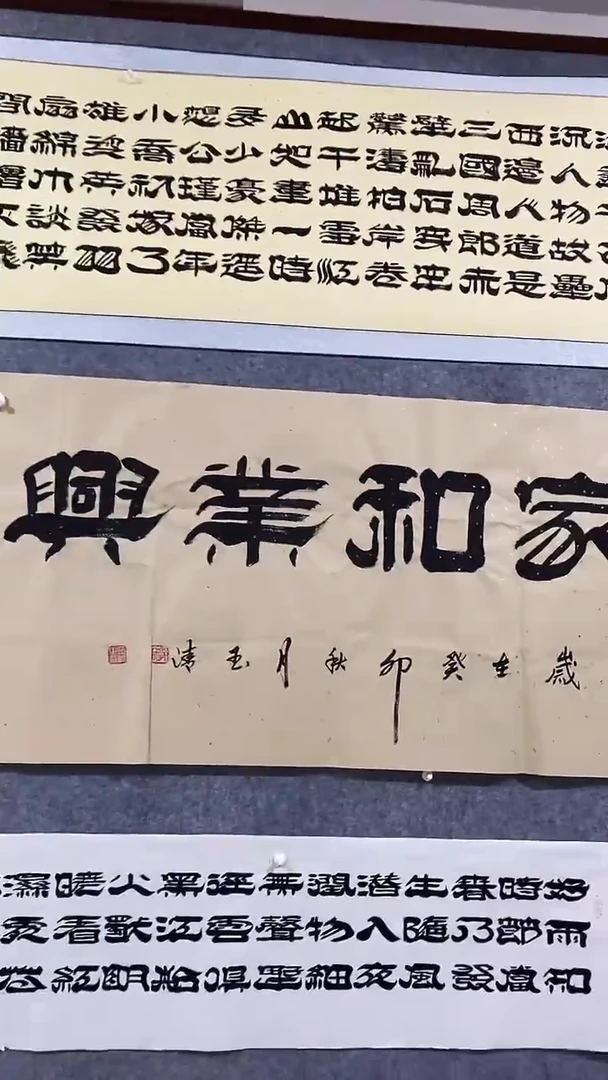 流人物故壘
西邊人道是
三國周郎赤
壁亂石穿空
驚濤拍岸卷
起千堆雪江
山如畫一時
多少豪傑遙
想公瑾當年
小喬初嫁了
雄姿英發羽
扇綸巾談笑
間檣櫓灰飛
家和業興
歲在癸卯秋月玉清
好雨知
時節當
春乃發
生隨風
潛入夜
潤物細
無聲野
徑雲俱
黑江船
火獨明
曉看紅
濕處花